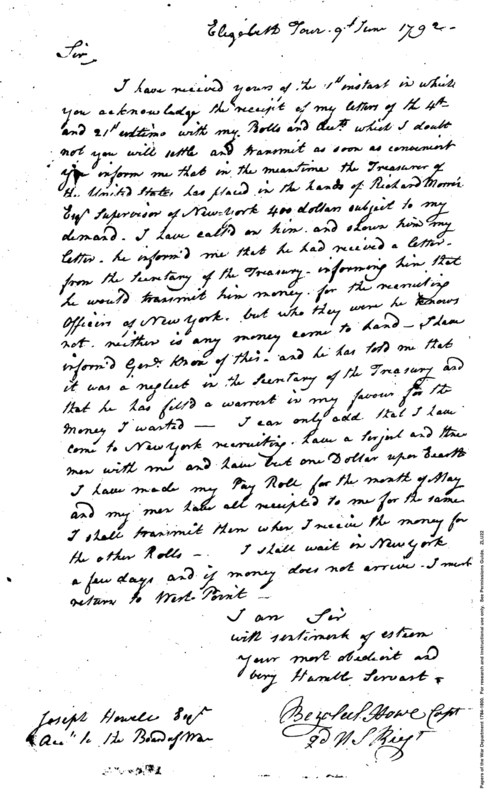 Elizabeth Town 9th June 1792 -
Sir
I have received yours of the 1st instant in which
you acknowledge the receipt of my letters of the 4th
and 21st ultimo with my Rolls and Accts which I doubt
not you will settle and transmit as soon as convenient
you inform me that in the meantime the Treasurer of
the United States has placed in the hands of Richard Morris
Esqr Supervisor of New-York 400 dollars subject to my
demand. I have call'd on him and shown him my
letter. he inform'd me that he had received a letter
from the Secretary of the Treasury informing him that
he would transmit him money for the recruiting
Officers of New York. but who they were he knows
not. neither is any money come to hand - I have
inform'd Genl Knox of this - and he has told me that
it was a neglect in the Secretary of the Treasury and
that he has fill'd a warrent in my favour for the
Money I wanted — I can only add that I have
come to New York recruiting. have a Serjnt and three
men with me and have but one Dollar upon Earth
I have made my Pay Roll for the month of May
and my men have all receipt'd to me for the same
I shall transmit them when I receive the money for
the other Rolls - I shall wait in New York
a few days and if money does not arrive. I must
return to West Point -
I am Sir
with sentiments of esteem
your most obedient and
very Humble Servant
Joseph Howell Esqr
Acct to the Board of War
Bezaleel Howe Capt
2d U S Regt
Papers of the War Department 1784-1800. For research and instructional use only. See Permissions Guide. ZLU02